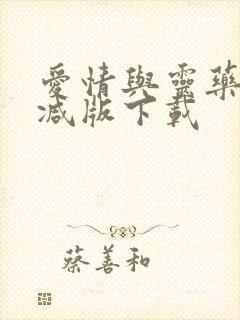 愛情與靈藥
減版下載
蔡善和